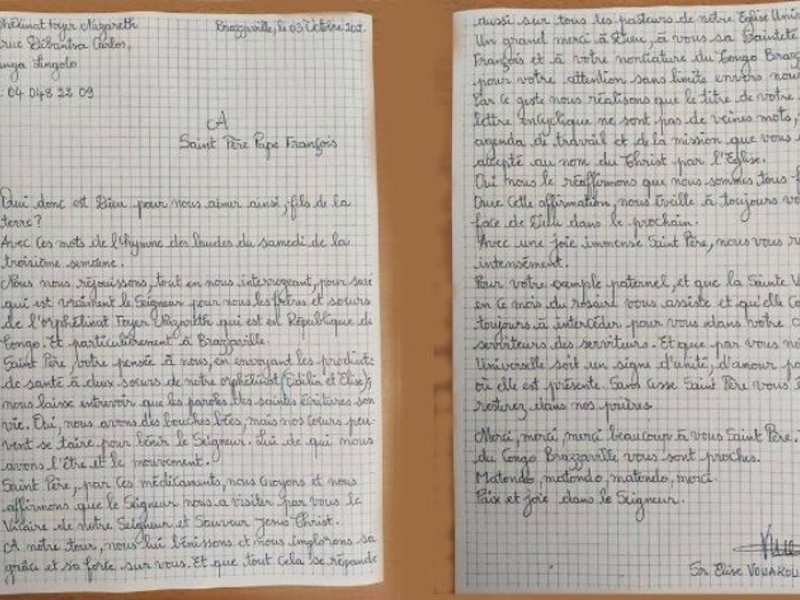 phélinat Foyer Nazareth
rue Débantsa Carlos,
unga Singolo
: 04 048 22 09
Brazzaville, le 03 Octobre 202
A
Saint Père Pape François
Qui donc est Dieu pour nous aimer ainsi, fils de la
terre?
Avec ces mots de l'hymne des laudes du samedi de la
troisième semaine.
Nous nous réjouissons, tout en nous interrogeant, pour savo
qui est vraiment le Seigneur pour nous les frères et soeurs
de l'orphélinat Foyer Nazareth qui est en République du
Congo. Et particulièrement à Brazzaville.
Saint Père, votre pensée à nous, en envoyant les produits
de santé à deux soeurs de notre orphélinat (Edilin et Elise),
nous laisse entrevoir que les paroles des saintes écritures son
vie. Oui, nous avons des bouches bées, mais nos coeurs peu
vent se taire pour bénir le Seigneur. Lui de qui nous
avons l'être et le mouvement.
Saint Père, par ces médicaments, nous croyons et nous
affirmons que le Seigneur nous a visiter par vous le
Vicaire de notre Seigneur et Sauveur Jesus Christ.
A notre tour, nous lui bénissons et nous implorons sa
grâce et sa force sur vous. Et que tout cela se répande
aussi sur tous les pasteurs de notre Eglise Univ
Un grand merci à Dieu, à vous sa Sainteté
François et à votre nonciature du Congo Brazz
pour votre attention sans limite envers nous
Par ce geste nous réalisons que le titre de votre
lettre Encyclique ne sont pas de veines mots,
agenda de travail et de la mission que vous
accepté au nom du Christ par l'Eglise.
Oui nous le réaffirmons que nous sommes tous f
Que cette affirmation, nous éveille à toujours vo
face de Dieu dans le prochain.
Avec une joie immense Saint Père, nous vous r
intensément.
Pour votre exemple paternel, et que la Sainte V
en ce mois du rosaire vous assiste et qu'elle co
toujours à intercéder pour vous dans votre
serviteurs des serviteurs. Et que par vous no
Universelle soit un signe d'unité, d'amour pa
où elle est présente. Sans cesse Saint Père vous
resterez dans nos prières.
Merci, merci, merci beaucoup à vous Saint Père.
du Congo Brazzaville vous sont proches.
Matondo, matondo, matondo, merci.
Paix et joie dans le Seigneur.
Sr Elise VOUAKOU